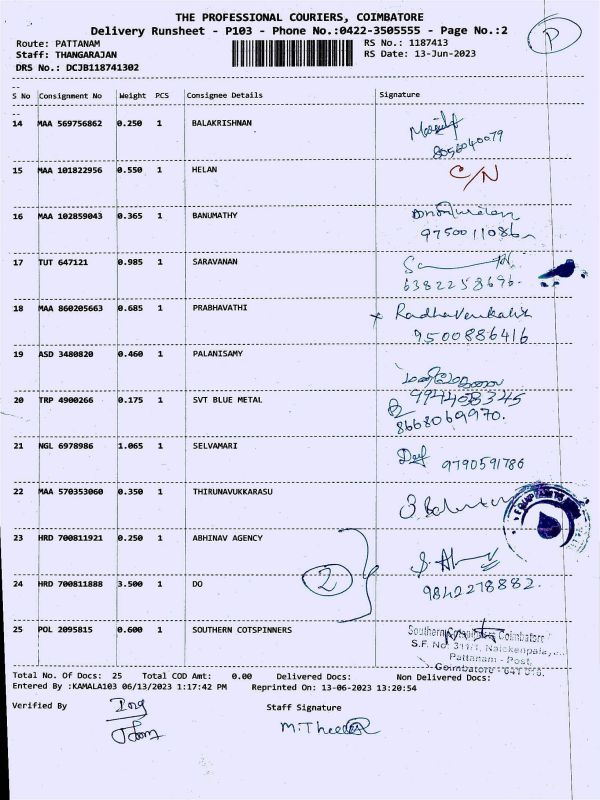 THE PROFESSIONAL COURIERS, COIMBATORE
Delivery Runsheet - P103 - Phone No.:0422-3505555 - Page No.:2
P
Route: PATTANAM
RS No.: 1187413
Staff: THANGARAJAN
RS Date: 13-Jun-2023
DRS No.: DCJB118741302
S No Consignment No Weight PCS Consignee Details Signature
14 MAA 569756862 0.250 1 BALAKRISHNAN
8056040079
15 MAA 101822956 0.550 1 HELAN C/N
16 MAA 102859043 0.365 1 BANUMATHY
9750011086
17 TUT 647121 0.985 1 SARAVANAN
6382258696.
18 MAA 860205663 0.685 1 PRABHAVATHI
9500886416
19 ASD 3480820 0.460 1 PALANISAMY
20 TRP 4900266 0.175 1 SVT BLUE METAL
8668069970.
21 NGL 6978986 1.065 1 SELVAMARI
9790591786
22 MAA 570353060 0.350 1 THIRUNAVUKKARASU
23 HRD 700811921 0.250 1 ABHINAV AGENCY
2
24 HRD 700811888 3.500 1 DO
9842278882.
25 POL 2095815 0.600 1 SOUTHERN COTSPINNERS
Southern Cotspinners Coimbatore
S.F. No. 311/1,
Pattanam - Post,
Coimbatore - 641 016.
Total No. Of Docs: 25 Total COD Amt: 0.00 Delivered Docs: Non Delivered Docs:
Entered By :KAMALA103 06/13/2023 1:17:42 PM Reprinted On: 13-06-2023 13:20:54
Verified By
Staff Signature